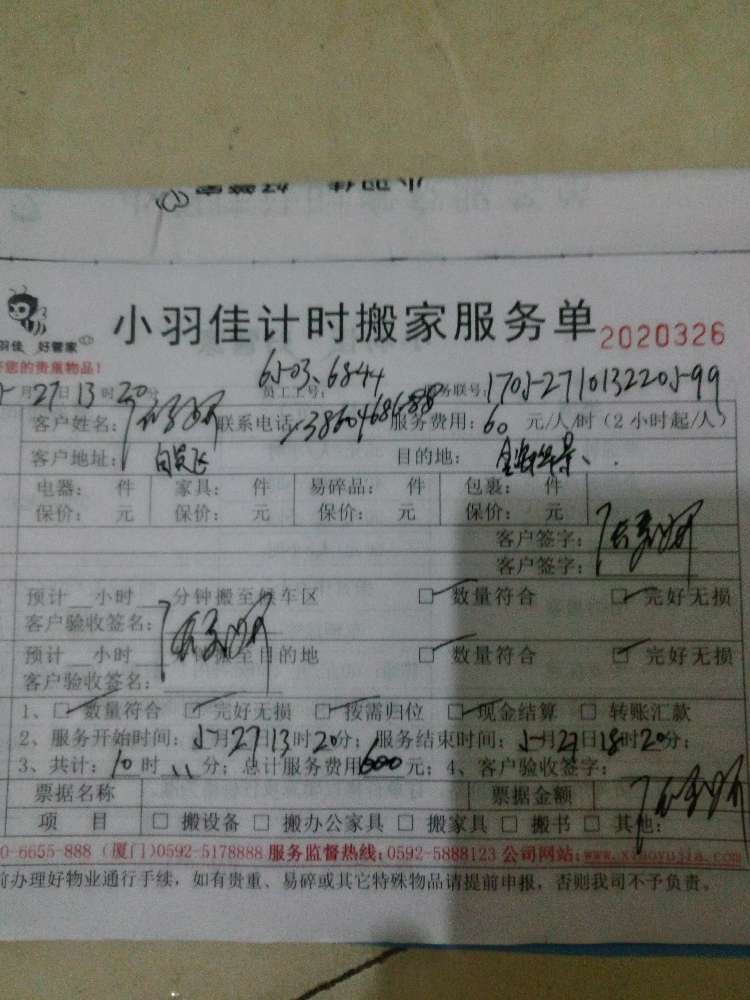 小羽佳 好管家
小羽佳计时搬家服务单 2020326
羽佳 好管家
您的贵重物品!
月27日13时20分 员工工号: 6503、6844 服务联号: 1705-2710132205-99
客户姓名: 联系电话: 服务费用: 60 元/人/时(2小时起/人)
客户地址: 目的地:
电器: 件 家具: 件 易碎品: 件 包裹: 件
保价: 元 保价: 元 保价: 元 保价: 元
客户签字:
客户签字:
预计 小时 分钟搬至候车区 □ 数量符合 □ 完好无损
客户验收签名:
预计 小时 搬至目的地 □ 数量符合 □ 完好无损
客户验收签名:
1、□ 数量符合 □ 完好无损 □ 按需归位 □ 现金结算 □ 转账汇款
2、服务开始时间: 5月27日13时20分; 服务结束时间: 5月27日18时20分;
3、共计: 10时 分; 总计服务费用600元; 4、客户验收签字:
票据名称 票据金额
项 目 □ 搬设备 □ 搬办公家具 □ 搬家具 □ 搬书 □ 其他:
0-6655-888 (厦门)0592-5178888 服务监督热线:0592-5888123 公司网站:www.xiaoyujia.com
前办理好物业通行手续,如有贵重、易碎或其它特殊物品请提前申报,否则我司不予负责。